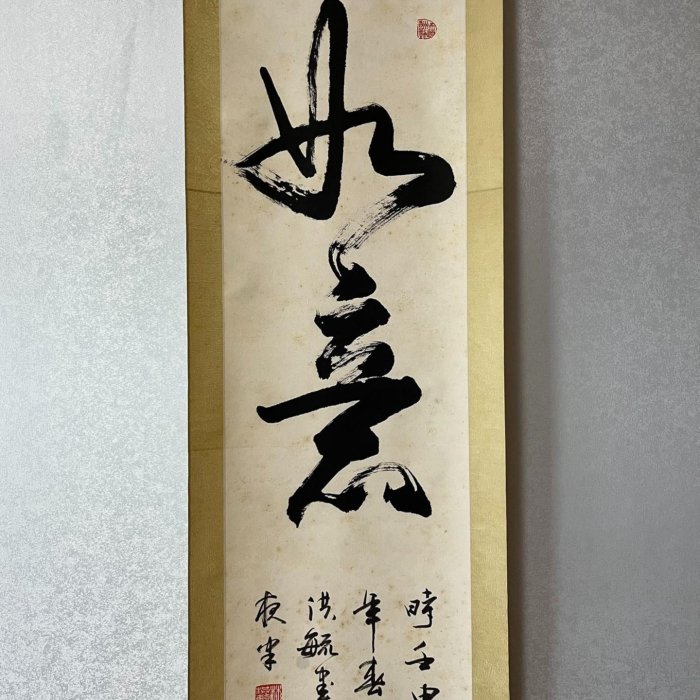 如意
時壬申
年春
洪毓書
夜半